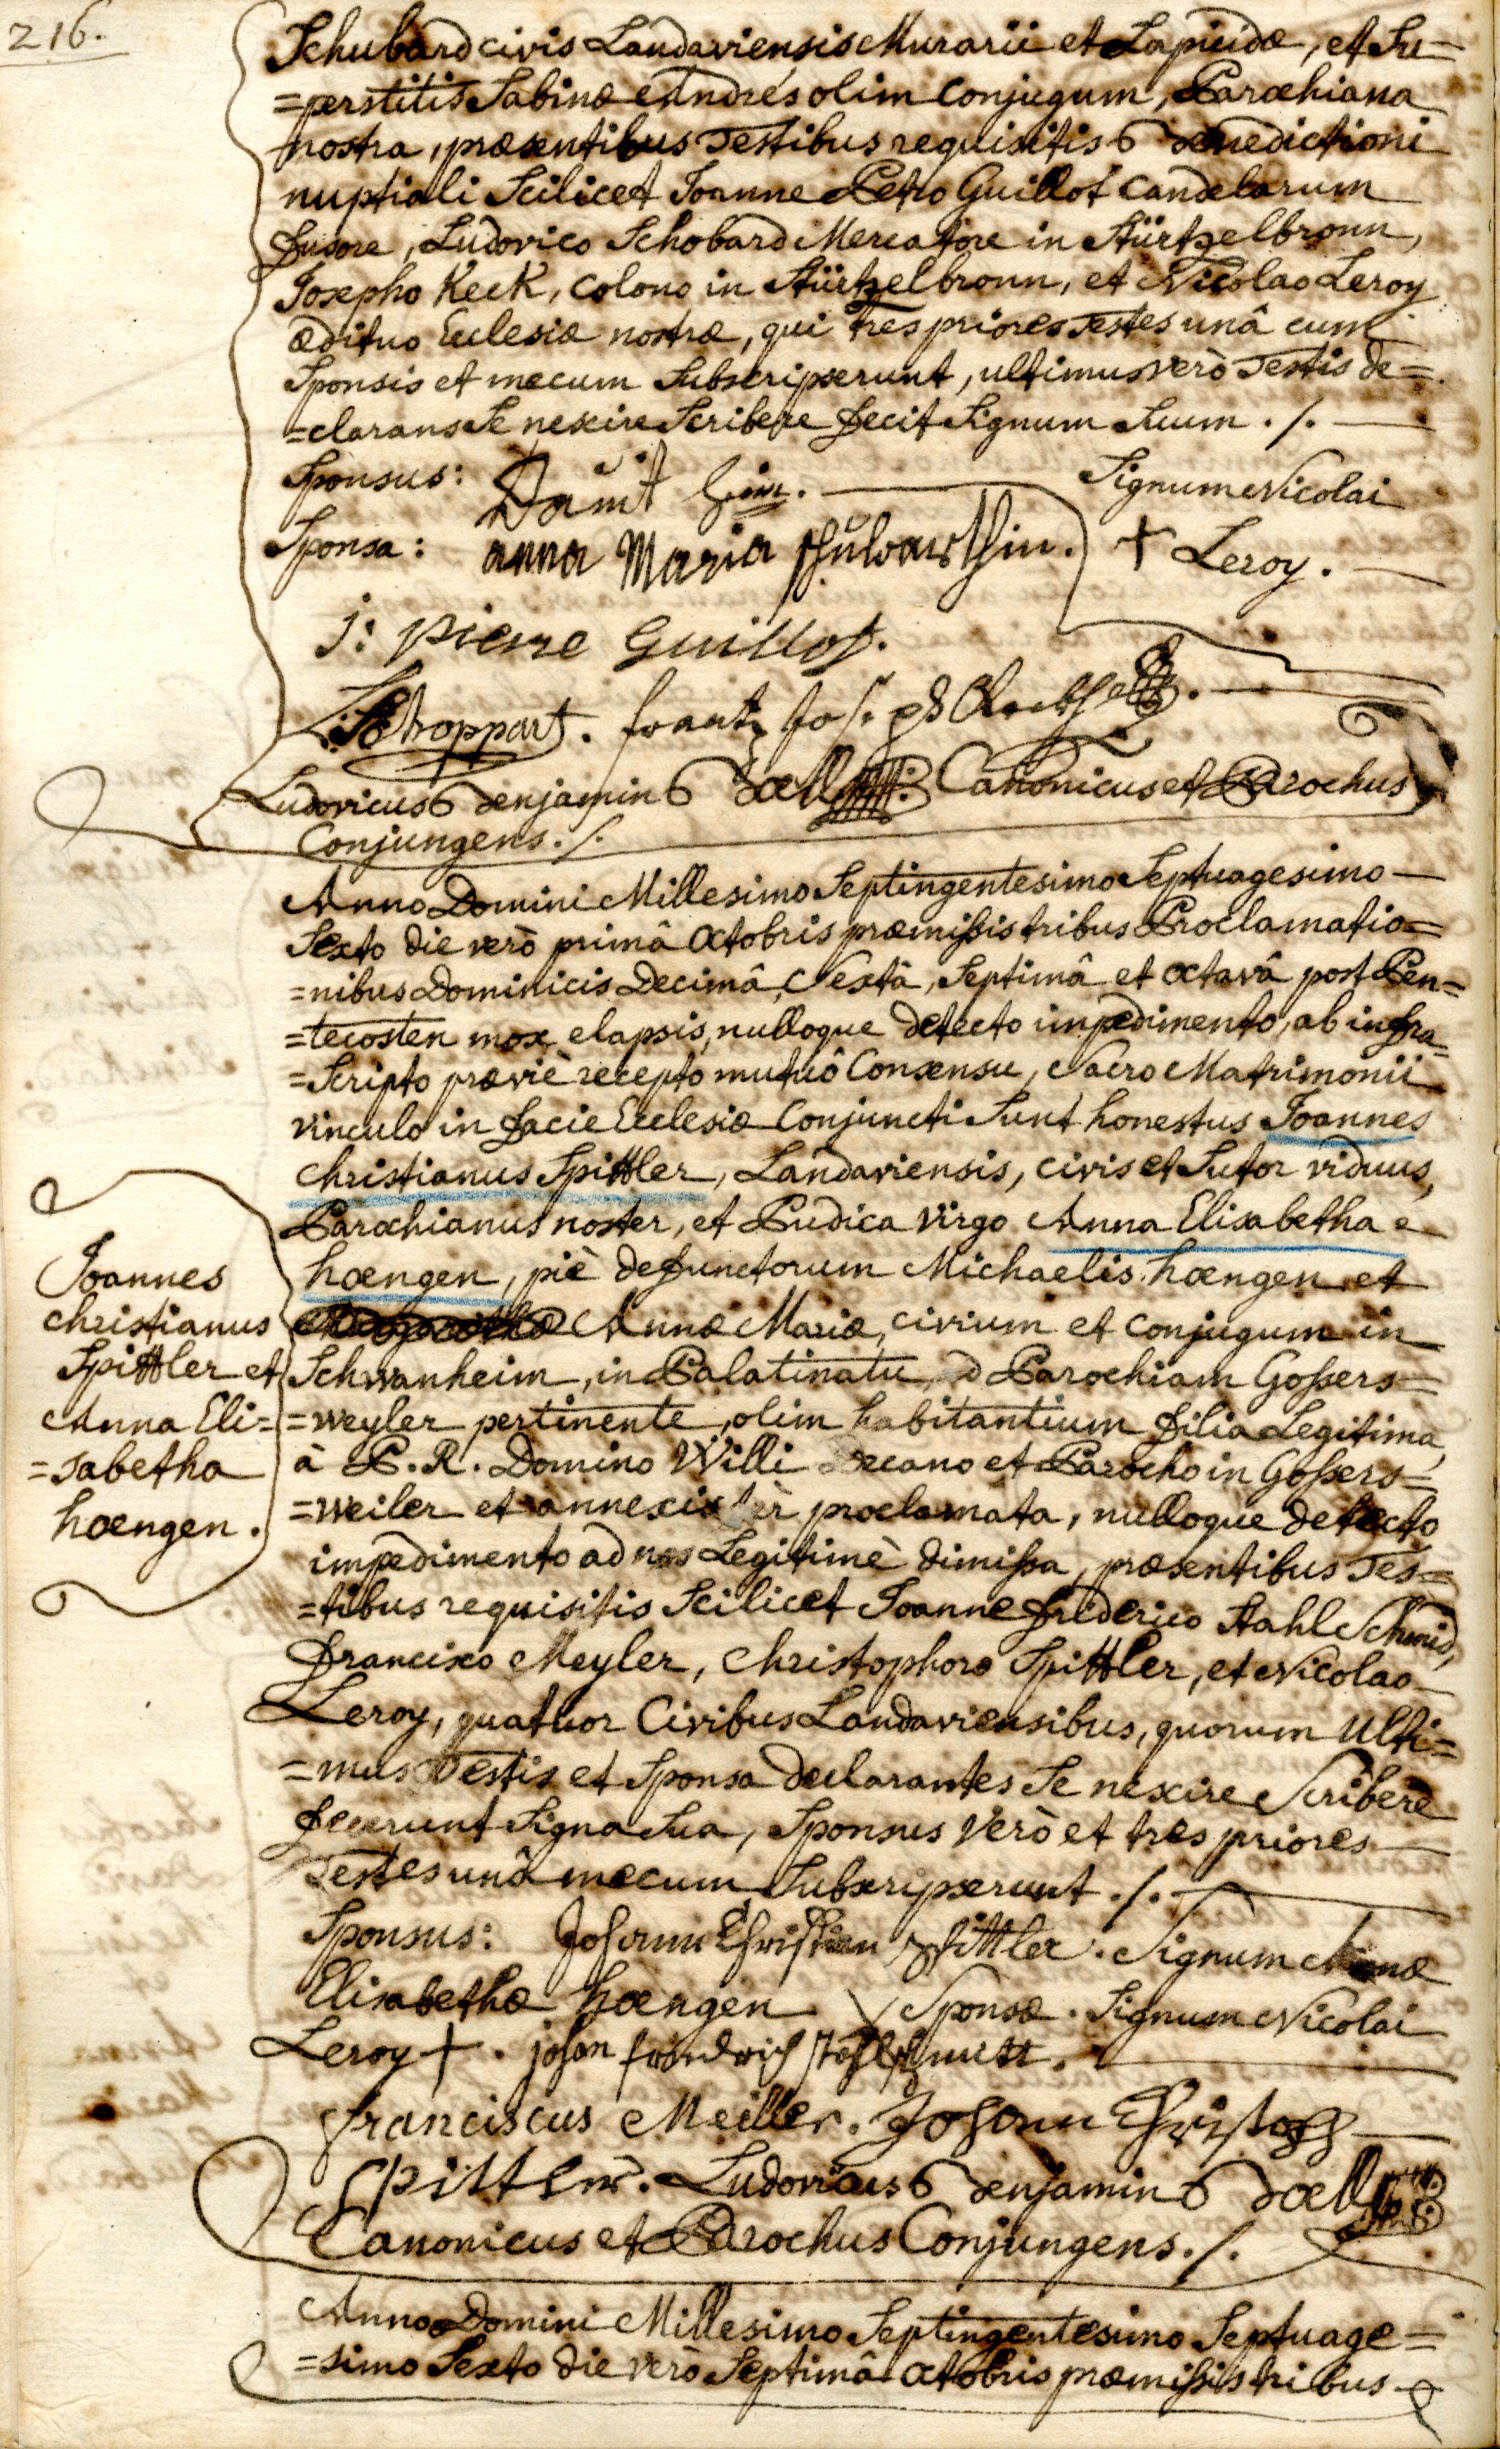 216.
Schubard civis Landaviensis Murarii et Lapicidæ, et Su-
=perstitis Sabinæ Andres olim Conjugum, Parochiana
nostra, præsentibus Testibus requisitis Benedictioni
nuptiali Scilicet Joanne Petro Guillot Candelarum
fusore, Ludovico Schobard Mercatore in Stürtzelbronn,
Josepho Keck, Colono in Stürtzelbronn, et Nicolao Leroy
ædituo Ecclesiæ nostræ, qui tres priores Testes unâ cum
Sponsis et mecum Subscripserunt, ultimus verò Testis de=
=clarans Se nescire Scribere fecit Signum Suum ./.
Sponsus:
Signum Nicolai
Sponsa: anna Maria
+ Leroy.
j: pierre Guillot.
L: Schoppart. frantz Jos.
Ludovicus Benjamin Boell Canonicus et Parochus
Conjungens ./.
Anno Domini Millesimo Septingentesimo Septuagesimo
Sexto die verò primâ Octobris præmissis tribus Proclamatio=
=nibus Dominicis Decimâ Sextâ, Septimâ et Octavâ post Pen=
=tecosten mox elapsis, nulloque detecto impedimento, ab infra=
=Scripto præviè recepto mutuô Consensu, Sacro Matrimonii
vinculo in facie Ecclesiæ Conjuncti Sunt honestus Joannes
Christianus Spittler, Landaviensis, civis et Sutor viduus,
Parochianus noster, et Pudica virgo Anna Elisabetha
hoengen, piè defunctorum Michaelis hoengen et
Annæ Mariæ, civium et conjugum in
Schwanheim, in Palatinatu, ad Parochiam Gossers=
=weyler pertinente, olim habitantium filia Legitima,
à P. R. Domino Willi Decano et Parocho in Gossers=
=weiler et annexis ter proclamata, nulloque detecto
impedimento ad nos Legitimè dimissa, præsentibus Tes=
=tibus requisitis Scilicet Joanne friderico Stahl Schmid,
francisco Meyler, Christophoro Spittler, et Nicolao
Leroy, quatuor Civibus Landaviensibus, quorum Ulti=
=mus Testis et Sponsa declarantes Se nescire Scribere
fecerunt Signa Sua, Sponsus verò et tres priores
Testes unâ mecum Subscripserunt ./.
Joannes
Christianus
Spittler et
Anna Eli=
=sabetha
hoengen.
Sponsus: Johann Christian Spittler. Signum Annæ
Elisabethæ hoengen Sponsæ. Signum Nicolai
Leroy +. johan fridrich
franciscus Meiller. Johann Christoph
Spittler. Ludovicus Benjamin Boell
Canonicus et Parochus Conjungens ./.
Anno Domini Millesimo Septingentesimo Septuage=
=simo Sexto die verò Septimâ Octobris præmissis tribus